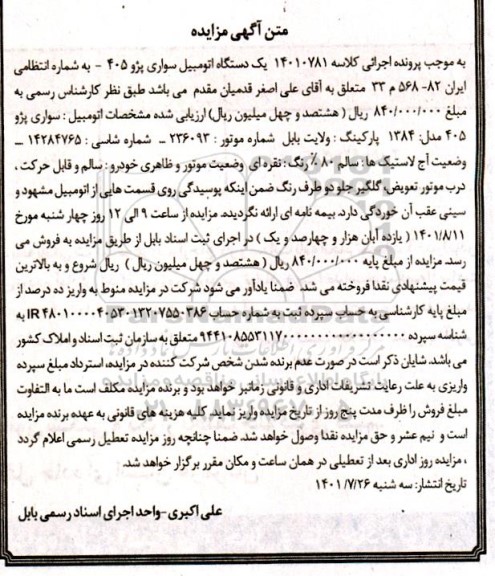 متن آگهی مزایده
به موجب پرونده اجرائی کلاسه ۱۴۰۱۰۷۸۱ یک دستگاه اتومبیل سواری پژو ۴۰۵ - به شماره انتظامی
ایران ۸۲- ۵۶۸ م ۳۳ متعلق به آقای علی اصغر قدمیان مقدم می باشد طبق نظر کارشناس رسمی به
مبلغ ۸۴۰/۰۰۰/۰۰۰ ریال ( هشتصد و چهل میلیون ریال) ارزیابی شده مشخصات اتومبیل : سواری پژو
۴۰۵ مدل: ۱۳۸۴ پارکینگ : ولایت بابل شماره موتور : ۲۳۶۰۹۳ ــ شماره شاسی : ۱۴۲۸۴۷۶۵ ــ
وضعیت آج لاستیک ها : سالم ۸۰ ٪ رنگ : نقره ای وضعیت موتور و ظاهری خودرو : سالم و قابل حرکت ،
درب موتور تعویض، گلگیر جلو دو طرف رنگ ضمن اینکه پوسیدگی روی قسمت هایی از اتومبیل مشهود و
سینی عقب آن خوردگی دارد. بیمه نامه ای ارائه نگردیده. مزایده از ساعت ۹ الی ۱۲ روز چهار شنبه مورخ
۱۴۰۱/۸/۱۱ ( یازده آبان هزار و چهارصد و یک ) در اجرای ثبت اسناد بابل از طریق مزایده به فروش می
رسد. مزایده از مبلغ پایه ۸۴۰/۰۰۰/۰۰۰ ریال ( هشتصد و چهل میلیون ریال ) ریال شروع و به بالاترین
قیمت پیشنهادی نقدا فروخته می شد. ضمنا یادآور می شود شرکت در مزایده منوط به واریز ده درصد از
مبلغ پایه کارشناسی به حساب سپرده ثبت به شماره حساب IR به
شناسه سپرده متعلق به سازمان ثبت اسناد و املاک کشور
می باشد. شایان ذکر است در صورت عدم برنده شدن شخص شرکت کننده در مزایده، استرداد مبلغ سپرده
واریزی به علت رعایت تشریفات اداری و قانونی زمانبر خواهد بود و برنده مزایده مکلف است ما به التفاوت
مبلغ فروش را ظرف مدت پنج روز از تاریخ مزایده واریز نماید. کلیه هزینه های قانونی به عهده برنده مزایده
است و نیم عشر و حق مزایده نقدا وصول خواهد شد. ضمنا چنانچه روز مزایده تعطیل رسمی اعلام گردد
، مزایده روز اداری بعد از تعطیلی در همان ساعت و مکان مقرر برگزار خواهد شد.
تاریخ انتشار: سه شنبه ۱۴۰۱/۷/۲۶
علی اکبری -واحد اجرای اسناد رسمی بابل